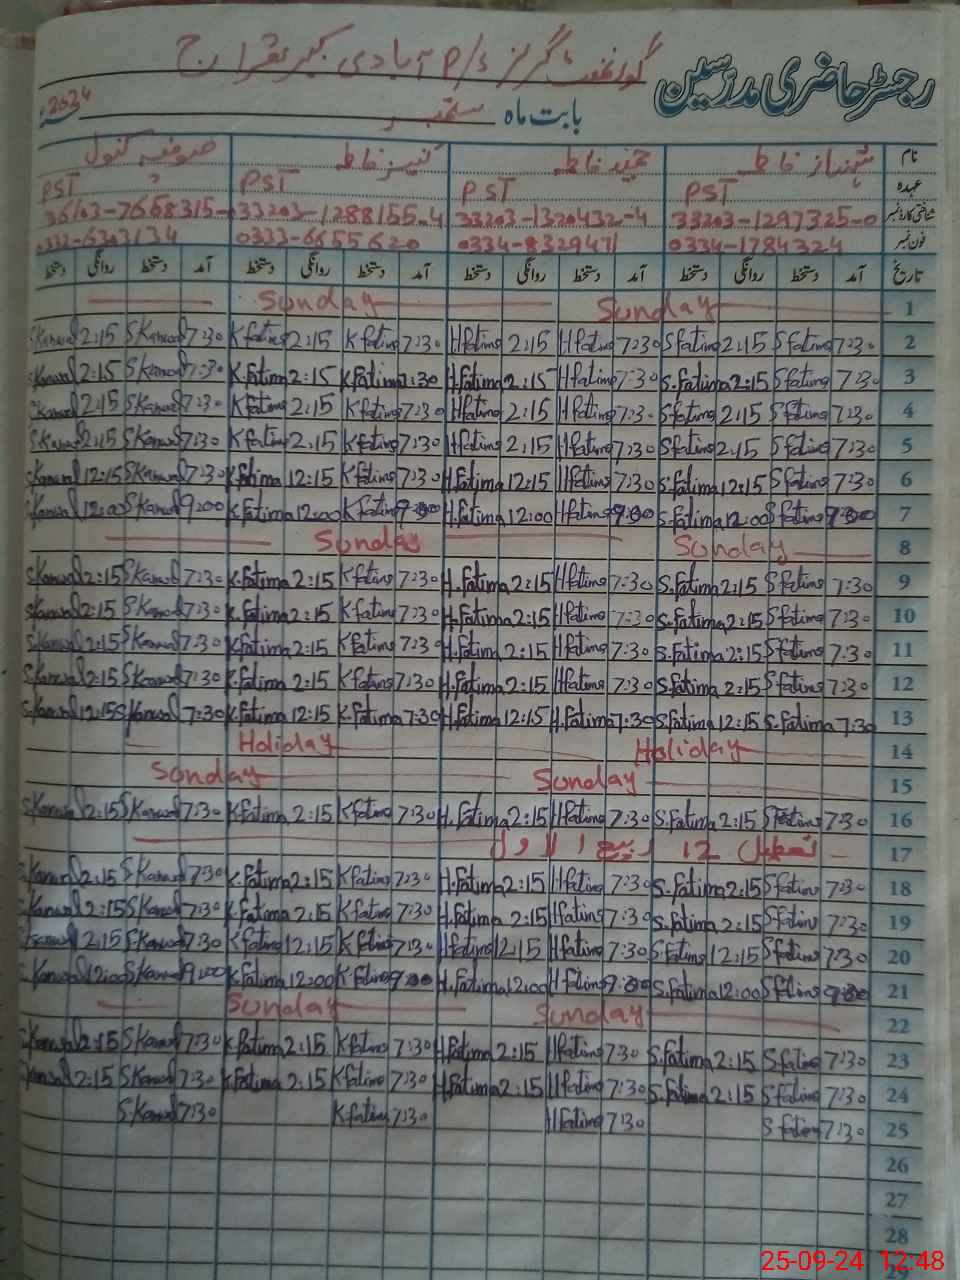 رجسٹر حاضری مدرسین
گورنمنٹ گرلز P/S آبادی
بابت ماہ ستمبر 2024ء
نام شہناز فاطمہ فاطمہ کنیز فاطمہ کنول
عہدہ PST PST PST PST
شناختی کارڈ نمبر 33203-1297325-0 33203-1320432-4 33203-1288155-4 36103-7658315-
فون نمبر 0334-1784324 0334-8329471 0333-6655620 0332-6303134
تاریخ آمد دستخط روانگی دستخط آمد دستخط روانگی دستخط آمد دستخط روانگی دستخط آمد دستخط روانگی دستخط
1 Sunday Sunday
2 7:30 S fatima 2:15 S fatima 7:30 H fatima 2:15 H fatima 7:30 K fatima 2:15 K fatima 7:30 S Kanwal 2:15 S Kanwal
3 7:30 S fatima 2:15 S. fatima 7:30 H fatima 2:15 H. fatima 7:30 K fatima 2:15 K fatima 7:30 S Kanwal 2:15 S Kanwal
4 7:30 S fatima 2:15 S fatima 7:30 H fatima 2:15 H fatima 7:30 K fatima 2:15 K fatima 7:30 S Kanwal 2:15 S Kanwal
5 7:30 S fatima 2:15 S fatima 7:30 H fatima 2:15 H fatima 7:30 K fatima 2:15 K fatima 7:30 S Kanwal 2:15 S Kanwal
6 7:30 S fatima 12:15 S. fatima 7:30 H fatima 12:15 H. fatima 7:30 K fatima 12:15 K fatima 7:30 S Kanwal 12:15 S Kanwal
7 9:00 S fatima 12:00 S. fatima 9:00 H fatima 12:00 H. fatima 9:00 K fatima 12:00 K. fatima 9:00 S Kanwal 12:00 S Kanwal
8 Sunday Sunday
9 7:30 S fatima 2:15 S. fatima 7:30 H fatima 2:15 H. fatima 7:30 K fatima 2:15 K. fatima 7:30 S Kanwal 2:15 S Kanwal
10 7:30 S fatima 2:15 S. fatima 7:30 H fatima 2:15 H. fatima 7:30 K fatima 2:15 K. fatima 7:30 S Kanwal 2:15 S Kanwal
11 7:30 S fatima 2:15 S. fatima 7:30 H fatima 2:15 H. fatima 7:30 K fatima 2:15 K. fatima 7:30 S Kanwal 2:15 S Kanwal
12 7:30 S fatima 2:15 S. fatima 7:30 H fatima 2:15 H. fatima 7:30 K fatima 2:15 K. fatima 7:30 S Kanwal 2:15 S Kanwal
13 7:30 S. fatima 12:15 S. fatima 7:30 H. fatima 12:15 H. fatima 7:30 K. fatima 12:15 K. fatima 7:30 S Kanwal 12:15 S. Kanwal
14 Holiday Holiday
15 Sunday Sunday
16 7:30 S fatima 2:15 S. fatima 7:30 H fatima 2:15 H. fatima 7:30 K fatima 2:15 K. fatima 7:30 S Kanwal 2:15 S. Kanwal
17 تعطیل 12 ربیع الاول
18 7:30 S fatima 2:15 S. fatima 7:30 H fatima 2:15 H. fatima 7:30 K fatima 2:15 K. fatima 7:30 S Kanwal 2:15 S. Kanwal
19 7:30 S fatima 2:15 S. fatima 7:30 H fatima 2:15 H. fatima 7:30 K fatima 2:15 K. fatima 7:30 S Kanwal 2:15 Kanwal
20 7:30 S fatima 12:15 S fatima 7:30 H fatima 12:15 H fatima 7:30 K fatima 12:15 K fatima 7:30 S Kanwal 12:15 Kanwal
21 9:00 S fatima 12:00 S. fatima 9:00 H fatima 12:00 H. fatima 9:00 K fatima 12:00 K. fatima 9:00 S Kanwal 12:00 Kanwal
22 Sunday Sunday
23 7:30 S fatima 2:15 S. fatima 7:30 H fatima 2:15 H. fatima 7:30 K fatima 2:15 K. fatima 7:30 S Kanwal 2:15 Kanwal
24 7:30 S fatima 2:15 S. fatima 7:30 H fatima 2:15 H. fatima 7:30 K fatima 2:15 K. fatima 7:30 S Kanwal 2:15 Kanwal
25 7:30 S fatima 7:30 H fatima 7:30 K fatima 7:30 S Kanwal
26
27
28
25-09-24 12:48